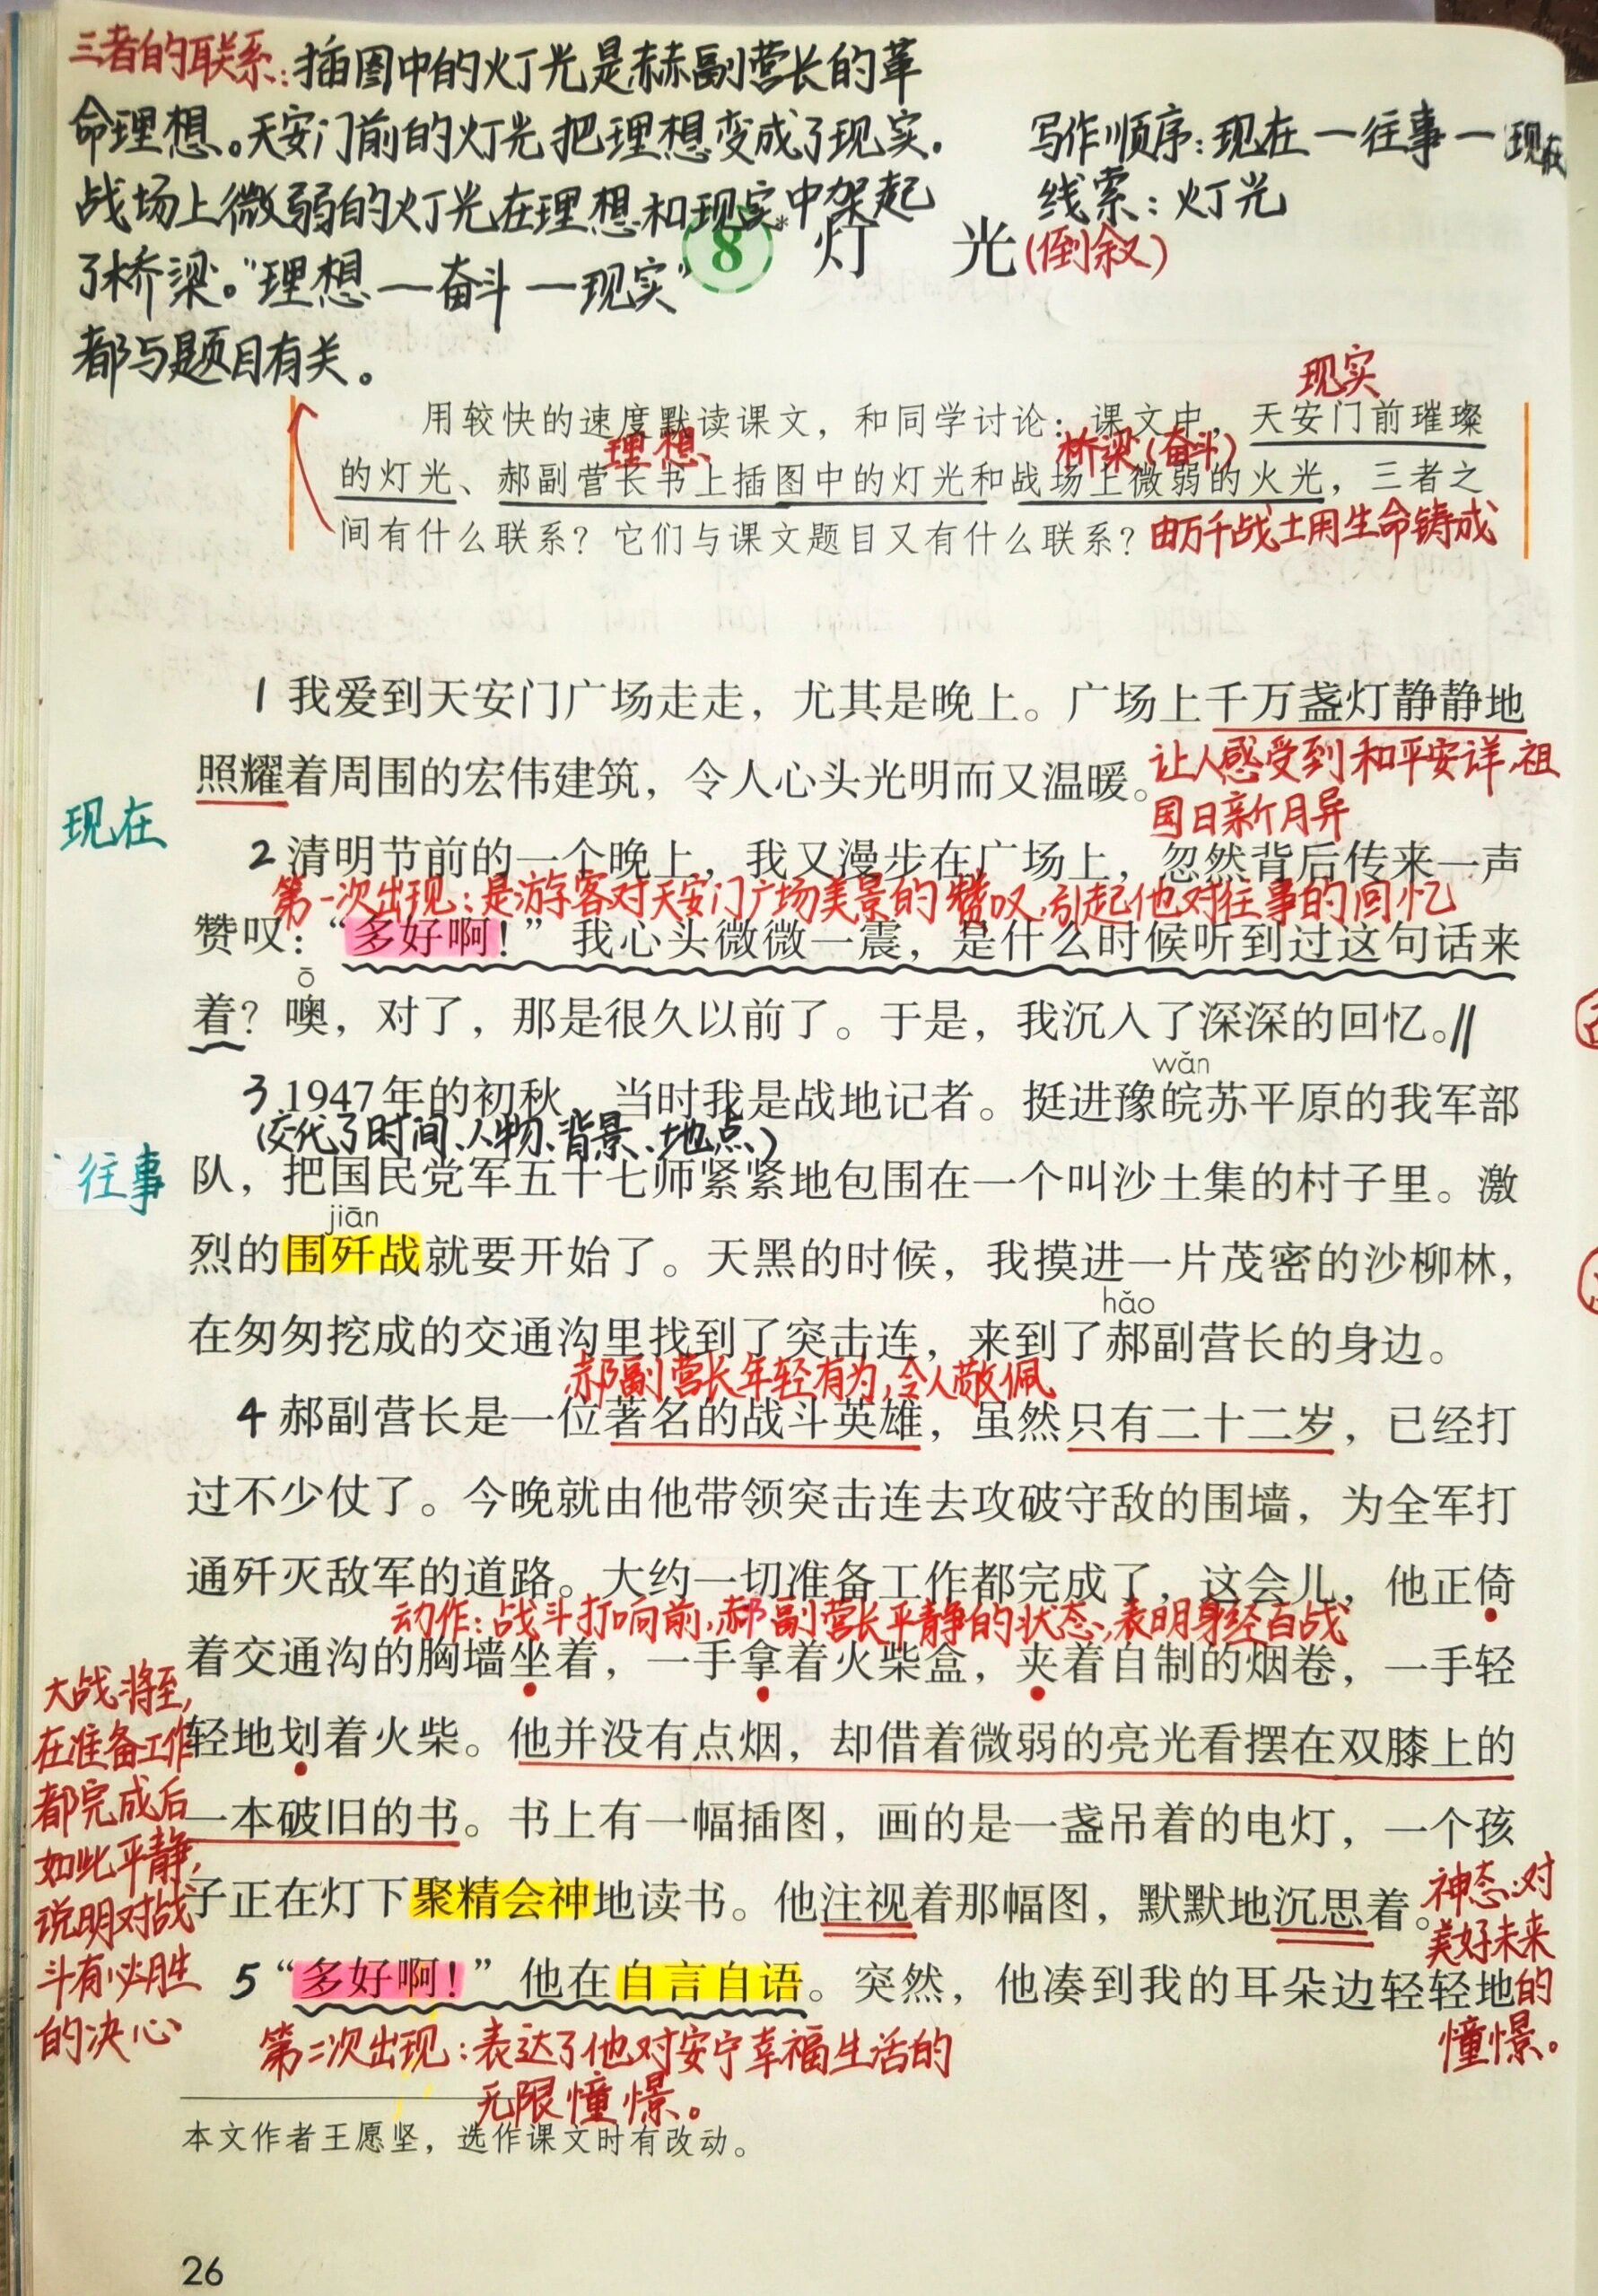 三者的联系：插图中的灯光是赫副营长的革
命理想。天安门前的灯光把理想变成了现实.
战场上微弱的灯光在理想和现实中架起
了桥梁。“理想一奋斗一现实”
都与题目有关。
写作顺序：现在一往事一现在
线索：灯光
8* 灯 光
(倒叙)
现实
用较快的速度默读课文，和同学讨论：课文中，天安门前璀璨
理想、
桥梁(奋斗)
的灯光、郝副营长书上插图中的灯光和战场上微弱的火光，三者之
间有什么联系？它们与课文题目又有什么联系？
由万千战士用生命铸成
1 我爱到天安门广场走走，尤其是晚上。广场上千万盏灯静静地
照耀着周围的宏伟建筑，令人心头光明而又温暖。
让人感受到和平安详,祖
国日新月异
现在
2 清明节前的一个晚上，我又漫步在广场上，忽然背后传来一声
第一次出现：是游客对天安门广场美景的赞叹,引起他对往事的回忆
赞叹：“多好啊！”我心头微微一震，是什么时候听到过这句话来
ō
着？噢，对了，那是很久以前了。于是，我沉入了深深的回忆。//
wǎn
3 1947年的初秋，当时我是战地记者。挺进豫皖苏平原的我军部
(交代了时间、人物、背景、地点)
往事
队，把国民党军五十七师紧紧地包围在一个叫沙土集的村子里。激
jiān
烈的围歼战就要开始了。天黑的时候，我摸进一片茂密的沙柳林，
hǎo
在匆匆挖成的交通沟里找到了突击连，来到了郝副营长的身边。
郝副营长年轻有为,令人敬佩
4 郝副营长是一位著名的战斗英雄，虽然只有二十二岁，已经打
过不少仗了。今晚就由他带领突击连去攻破守敌的围墙，为全军打
通歼灭敌军的道路。大约一切准备工作都完成了，这会儿，他正倚
动作：战斗打响前,郝副营长平静的状态,表明身经百战
着交通沟的胸墙坐着，一手拿着火柴盒，夹着自制的烟卷，一手轻
轻地划着火柴。他并没有点烟，却借着微弱的亮光看摆在双膝上的
一本破旧的书。书上有一幅插图，画的是一盏吊着的电灯，一个孩
子正在灯下聚精会神地读书。他注视着那幅图，默默地沉思着。
大战将至,
在准备工作
都完成后
如此平静,
说明对战
斗有必胜
的决心
神态:对
美好未来
的
憧憬。
5 “多好啊！”他在自言自语。突然，他凑到我的耳朵边轻轻地
第二次出现：表达了他对安宁幸福生活的
无限憧憬。
本文作者王愿坚，选作课文时有改动。
26